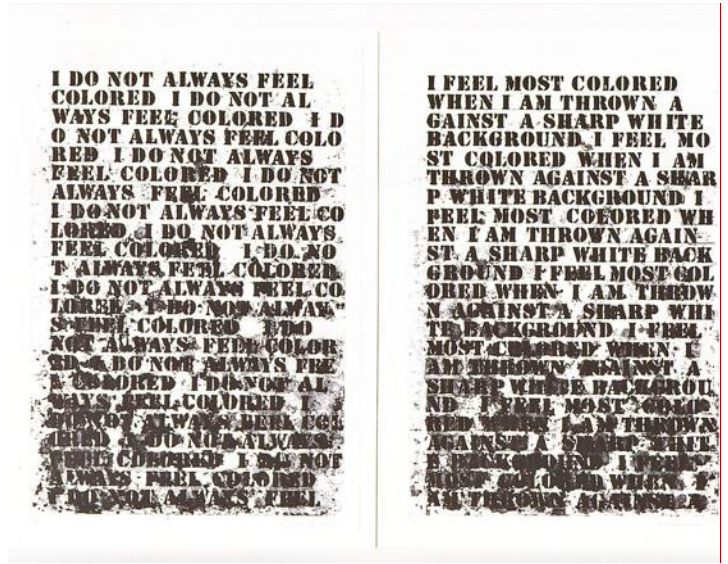 I DO NOT ALWAYS FEEL
COLORED I DO NOT AL
WAYS FEEL COLORED I D
O NOT ALWAYS FEEL COLO
RED I DO NOT ALWAYS
FEEL COLORED I DO NOT
ALWAYS FEEL COLORED
I DO NOT ALWAYS FEEL CO
LORED I DO NOT ALWAYS
FEEL COLORED I DO NO
T ALWAYS FEEL COLORED
I DO NOT ALWAYS FEEL CO
LORED I DO NOT ALWAY
S FEEL COLORED I DO
NOT ALWAYS FEEL COLOR
ED I DO NOT ALWAYS FEE
L COLORED I DO NOT AL
WAYS FEEL COLORED I
DO NOT ALWAYS FEEL COL
ORED I DO NOT ALWAYS
FEEL COLORED I DO NOT
ALWAYS FEEL COLORED
I DO NOT ALWAYS FEEL
I FEEL MOST COLORED
WHEN I AM THROWN A
GAINST A SHARP WHITE
BACKGROUND I FEEL MO
ST COLORED WHEN I AM
THROWN AGAINST A SHAR
P WHITE BACKGROUND I
FEEL MOST COLORED WH
EN I AM THROWN AGAIN
ST A SHARP WHITE BACK
GROUND I FEEL MOST COL
ORED WHEN I AM THROW
N AGAINST A SHARP WHI
TE BACKGROUND I FEEL
MOST COLORED WHEN I
AM THROWN AGAINST A
SHARP WHITE BACKGROU
ND I FEEL MOST COLO
RED WHEN I AM THROWN
AGAINST A SHARP WHITE
BACKGROUND I FEEL
MOST COLORED WHEN I
AM THROWN AGAINST A